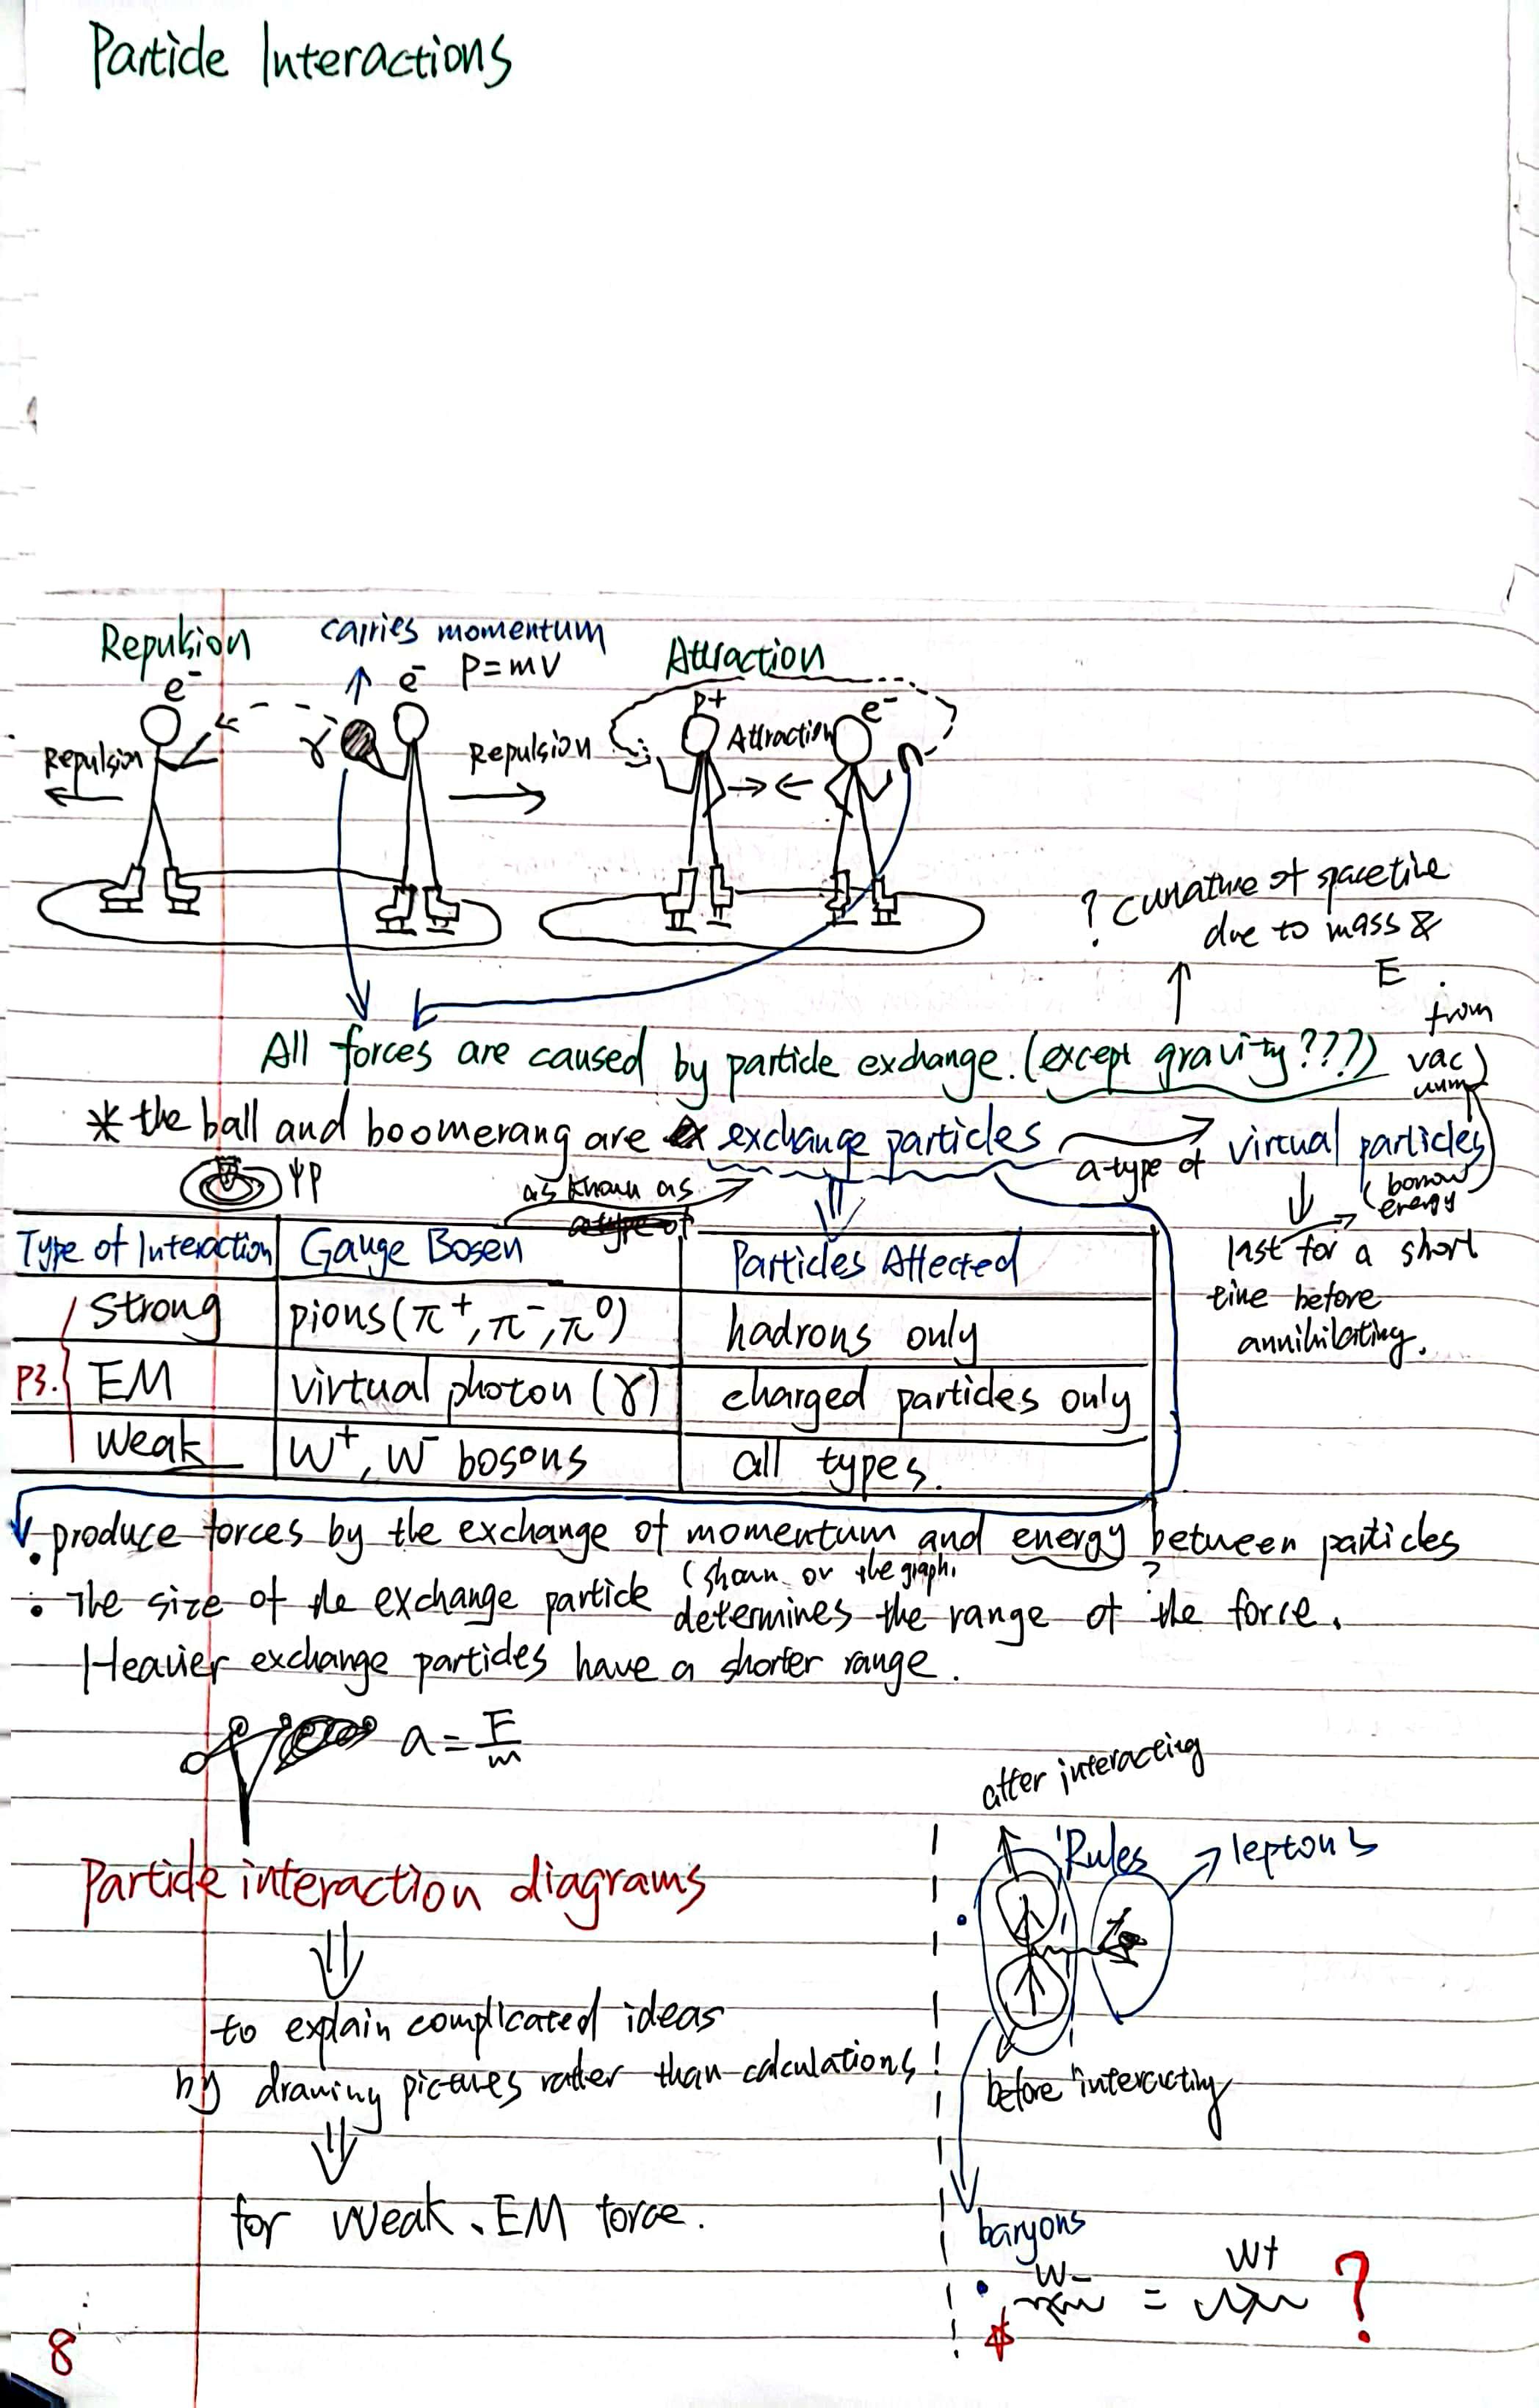 Particle Interactions
Repulsion
carries momentum
P=mv
Attraction
e⁻
e⁻
γ
Repulsion
Repulsion
p+
Attraction
e⁻
? curvature of spacetime
due to mass &
E
All forces are caused by particle exchange. (except gravity???)
from
vac
uum
* the ball and boomerang are exchange particles
a type of
virtual particles
(borrow
energy
last for a short
time before
annihilating.
as known as
a type of
Type of Interaction | Gauge Bosen | Particles Affected
P3.
Strong | pions (π⁺, π⁻, π⁰) | hadrons only
EM | virtual photon (γ) | charged particles only
Weak | W⁺, W⁻ bosons | all types.
• produce forces by the exchange of momentum and energy between particles
(shown on the graph.
?
• The size of the exchange particle determines the range of the force.
Heavier exchange particles have a shorter range.
a = F/m
Particle interaction diagrams
to explain complicated ideas
by drawing pictures rather than calculations
for weak、EM force.
after interacting
Rules
leptons
before interacting
baryons
• W- = W+ ?
8